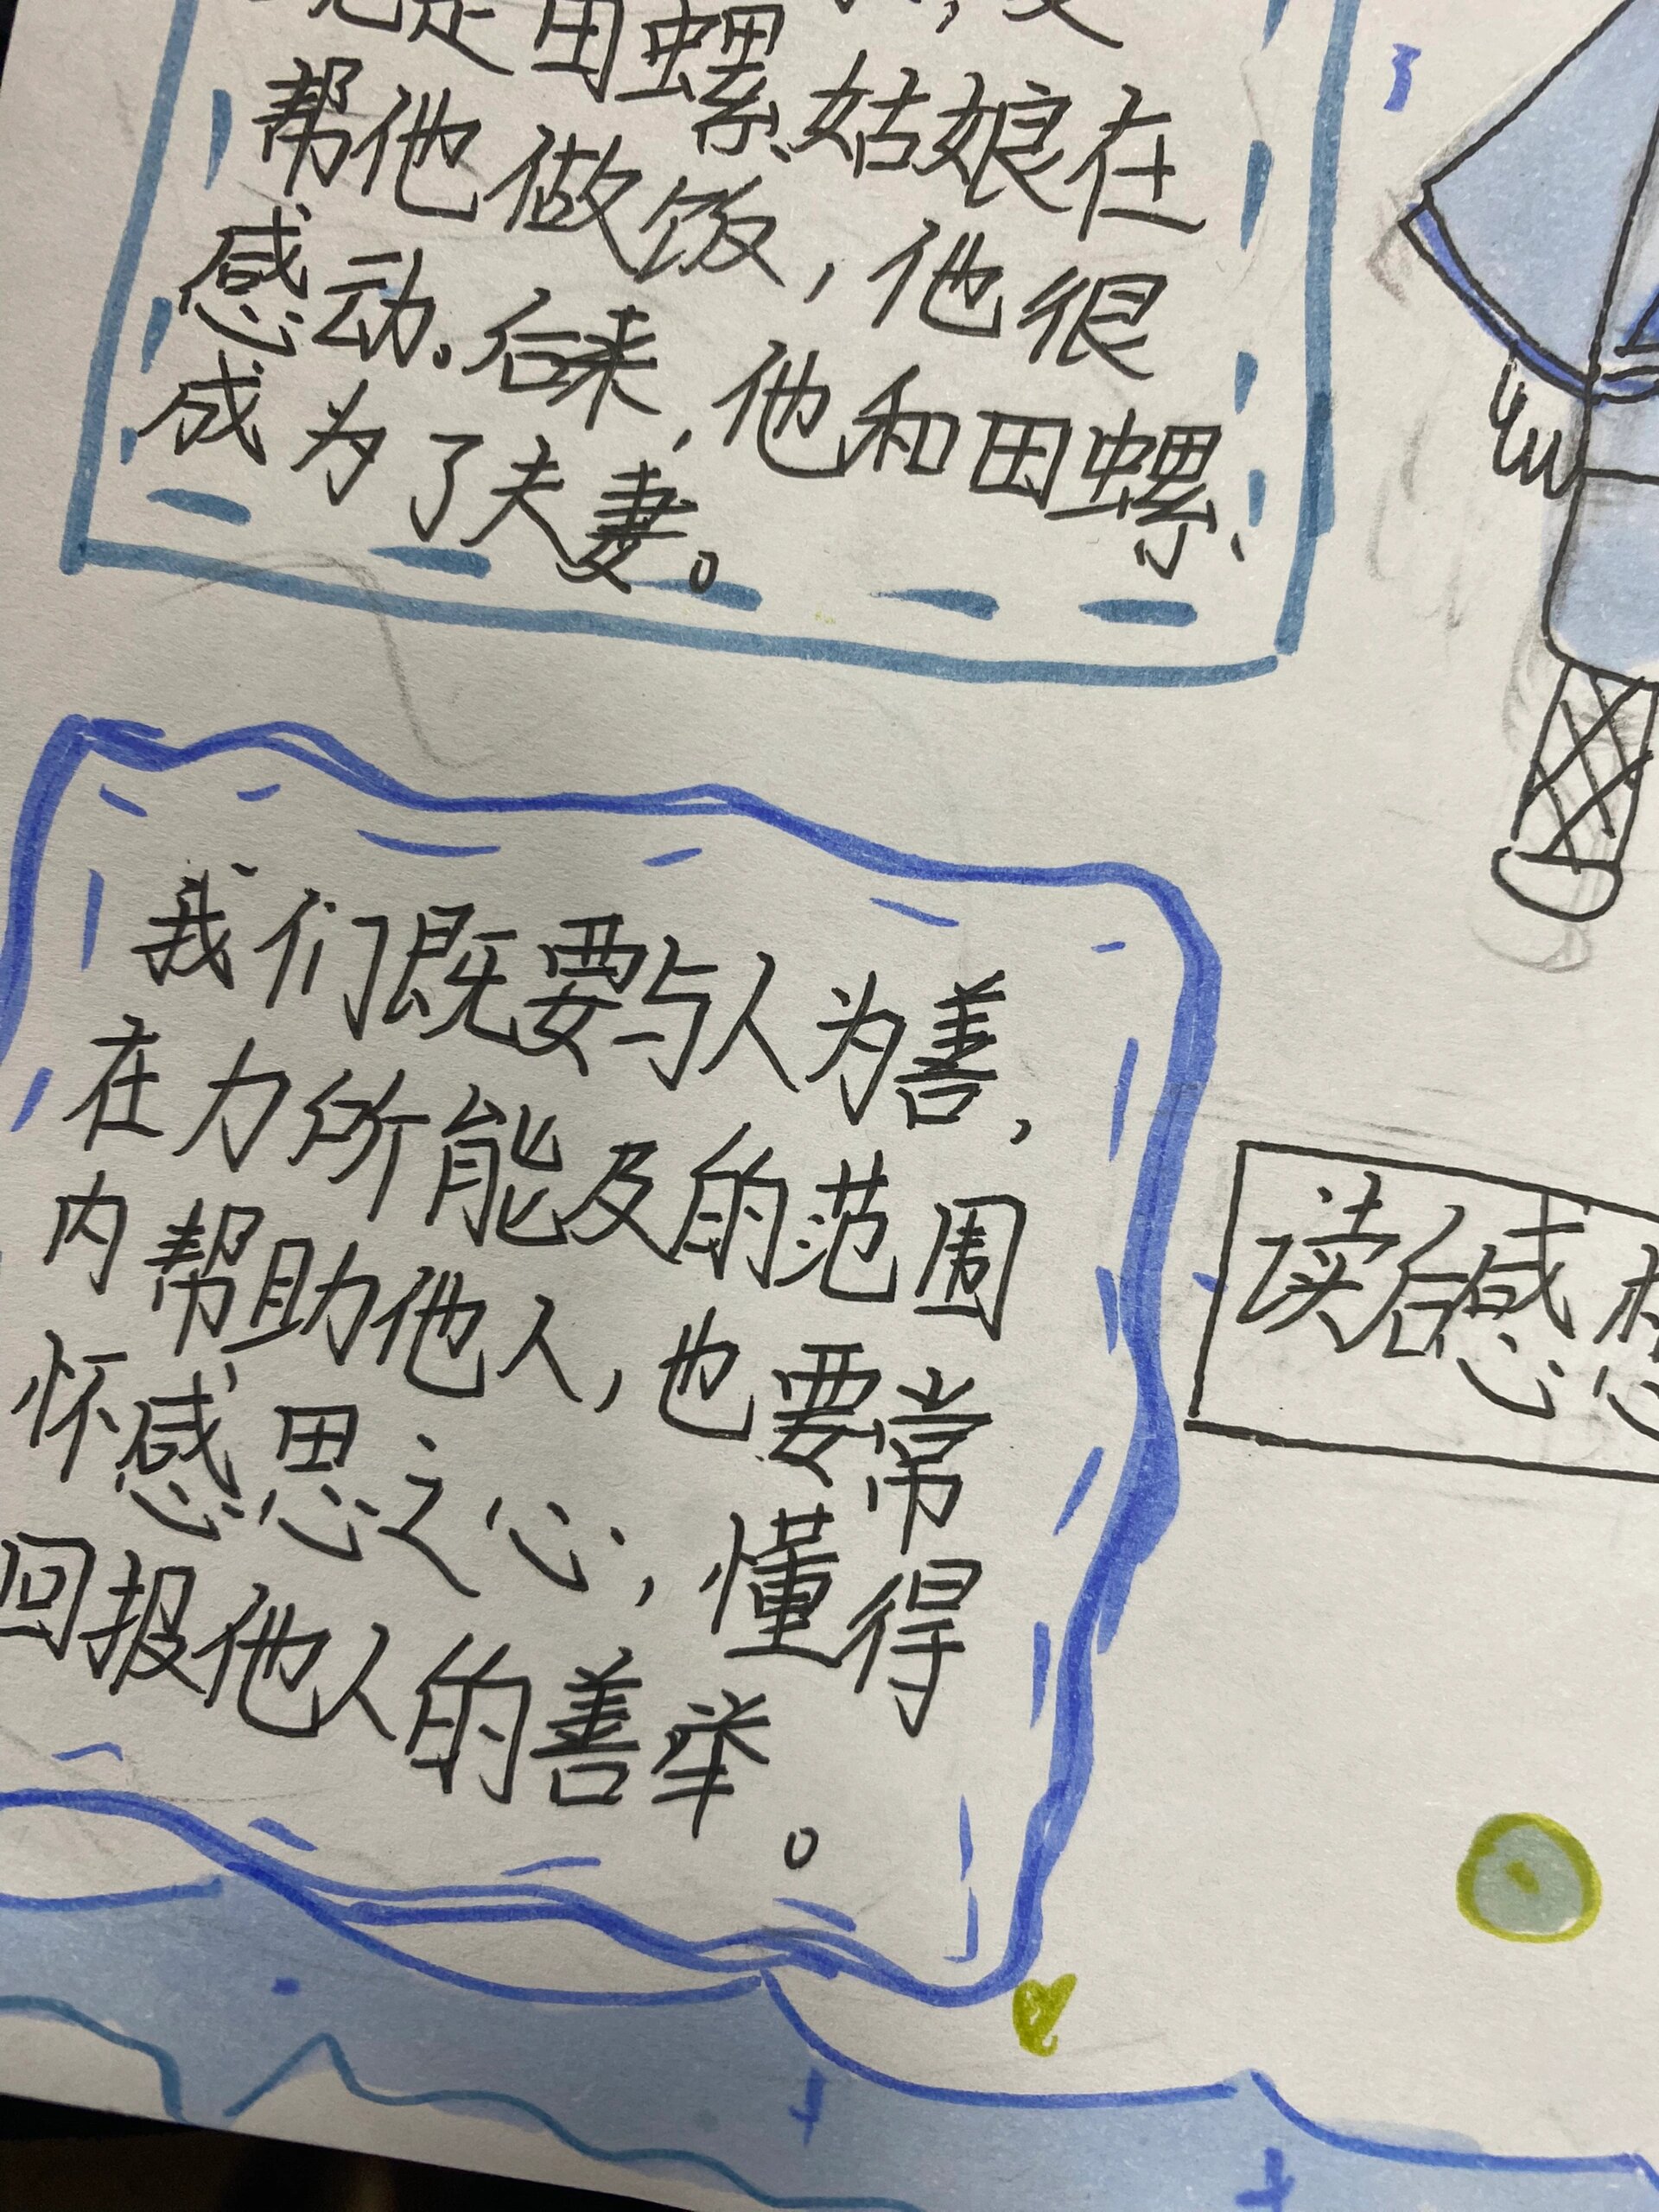 是田螺姑娘在
帮他做饭，他很
感动。后来，他和田螺
成为了夫妻。
我们既要与人为善，
在力所能及的范围
内帮助他人，也要常
怀感思之心，懂得
回报他人的善举。
读后感想